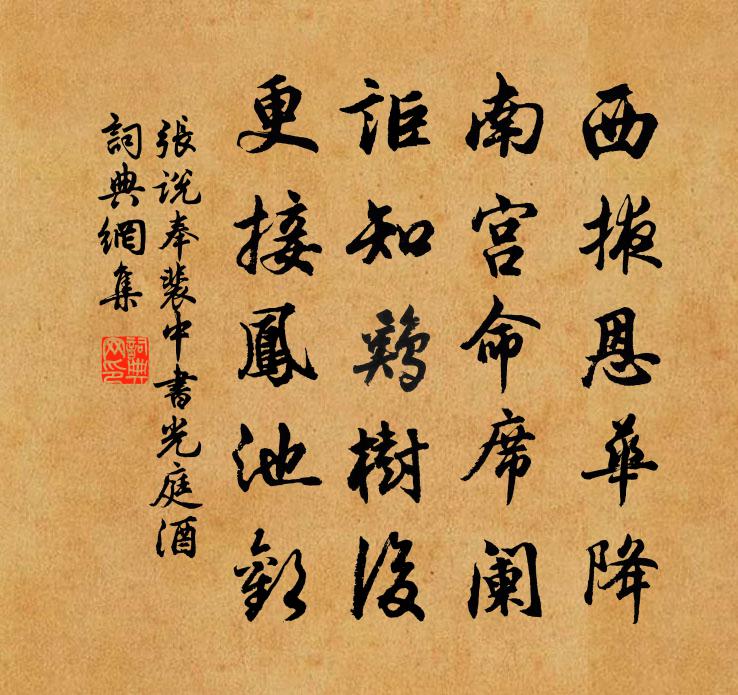 西掖恩華降
南宮命席闌
詎知鷄樹後
更接鳳池歡
張說奉裴中書光庭酒
詞典網集
詞典网印